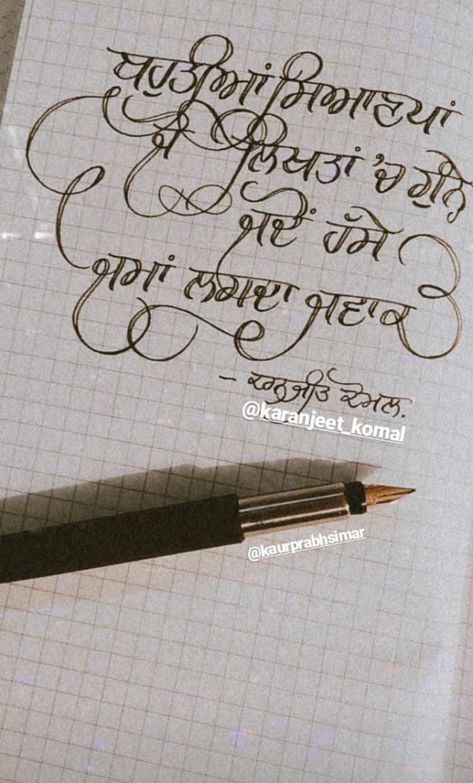 ਬਹੁਤੀਆਂ ਸਿਆਣਪਾਂ
ਜੋ ਲਿਖਤਾਂ 'ਚ ਗੁੰਨੇ
ਜਦੋਂ ਹੱਸੇ
ਜਮਾਂ ਲਗਦਾ ਜਵਾਕ
- ਕਰਨਜੀਤ ਕੋਮਲ.
@karanjeet_komal
@kaurprabhsimar